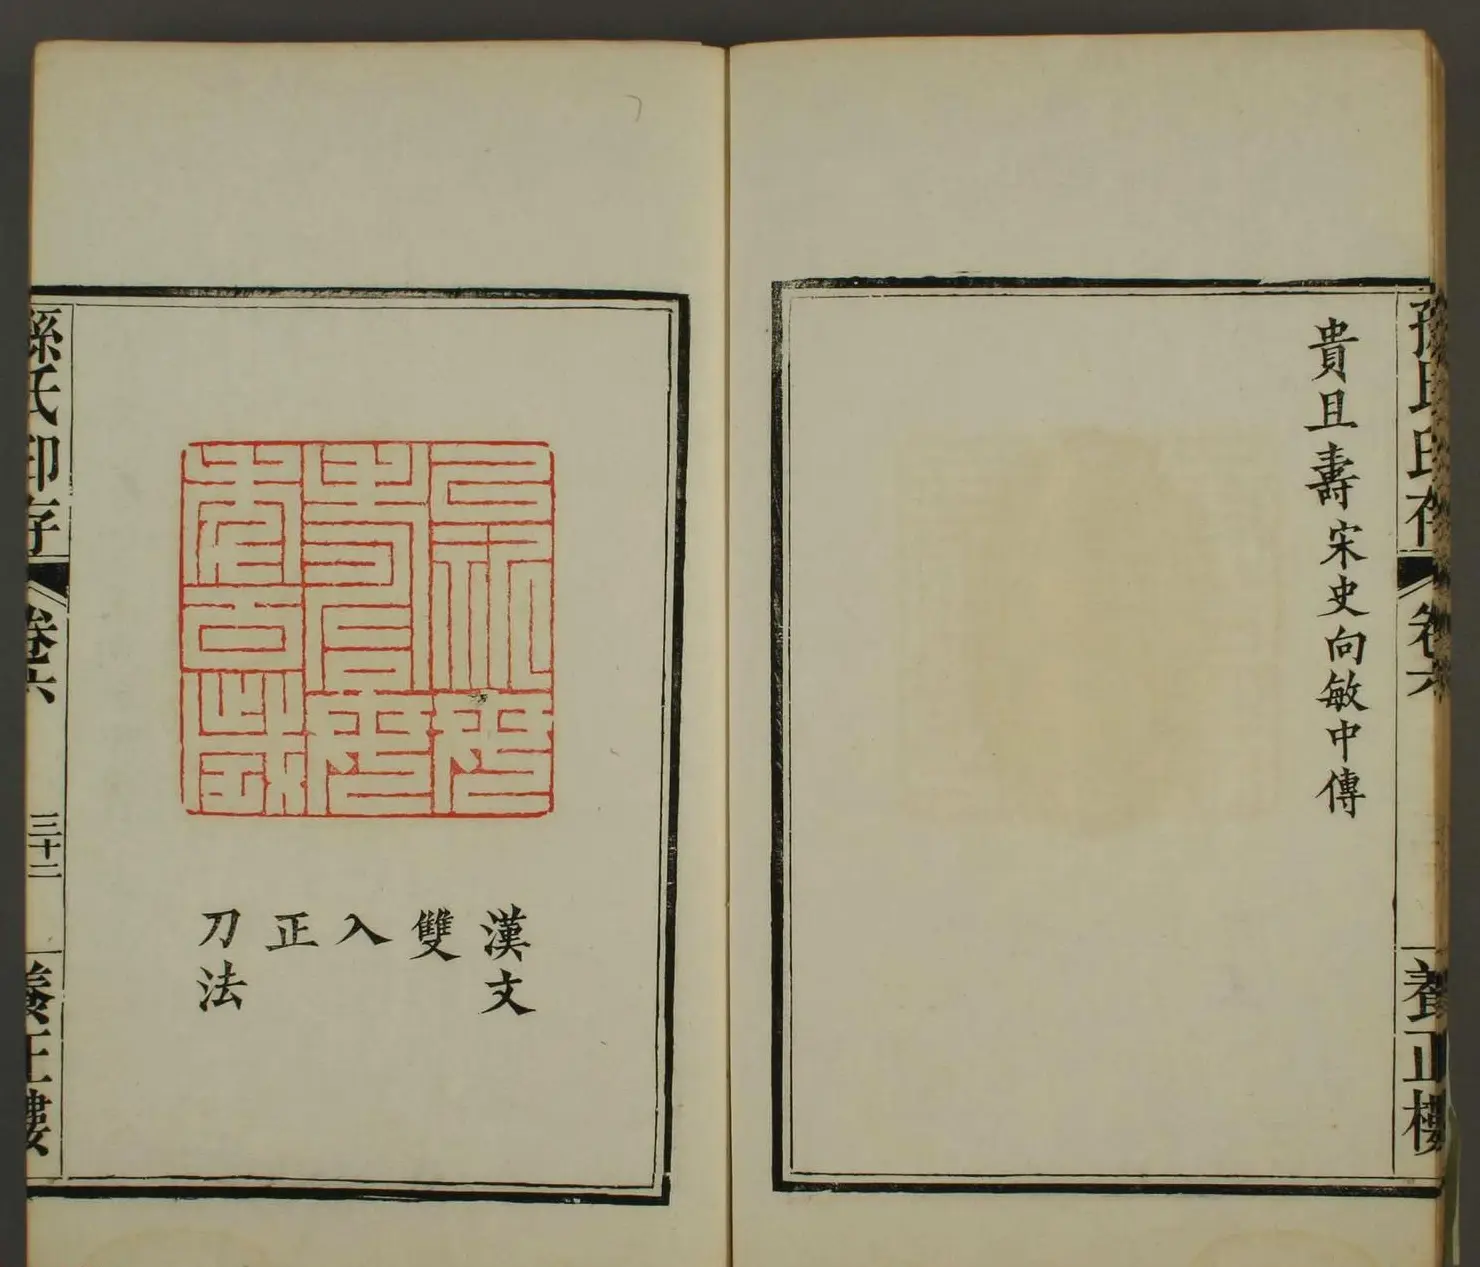 孫氏印存
卷六
養正樓
貴且壽宋史向敏中傳
漢文
雙
入
正
刀法
孫氏印存
卷六
三十二
養正樓